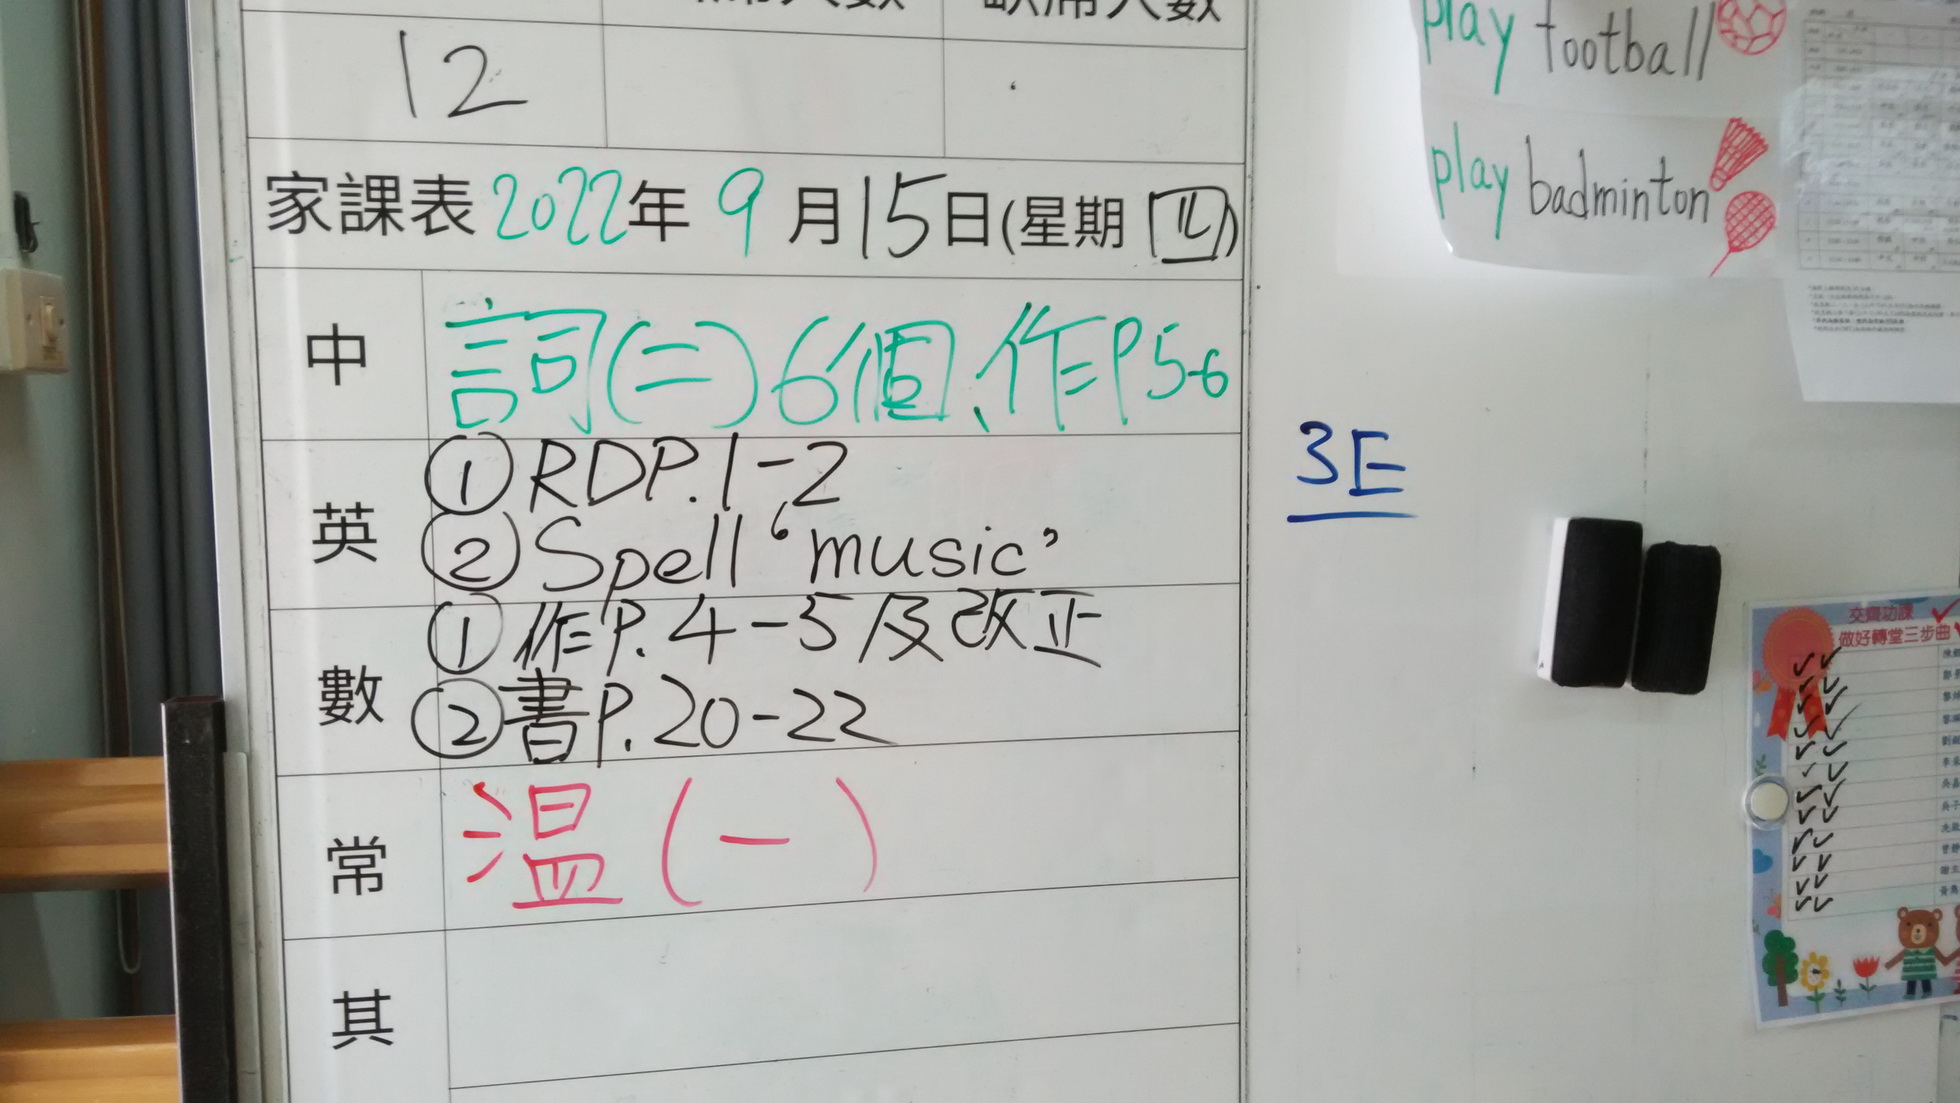 12
家課表2022年9月15日(星期四)
中
詞(二)6個、作P5-6
英
①RDP.1-2
②Spell 'music'
數
①作P.4-5及改正
②書P.20-22
常
溫(一)
其
3E
play football
play badminton
交齊功課
做好轉堂三步曲